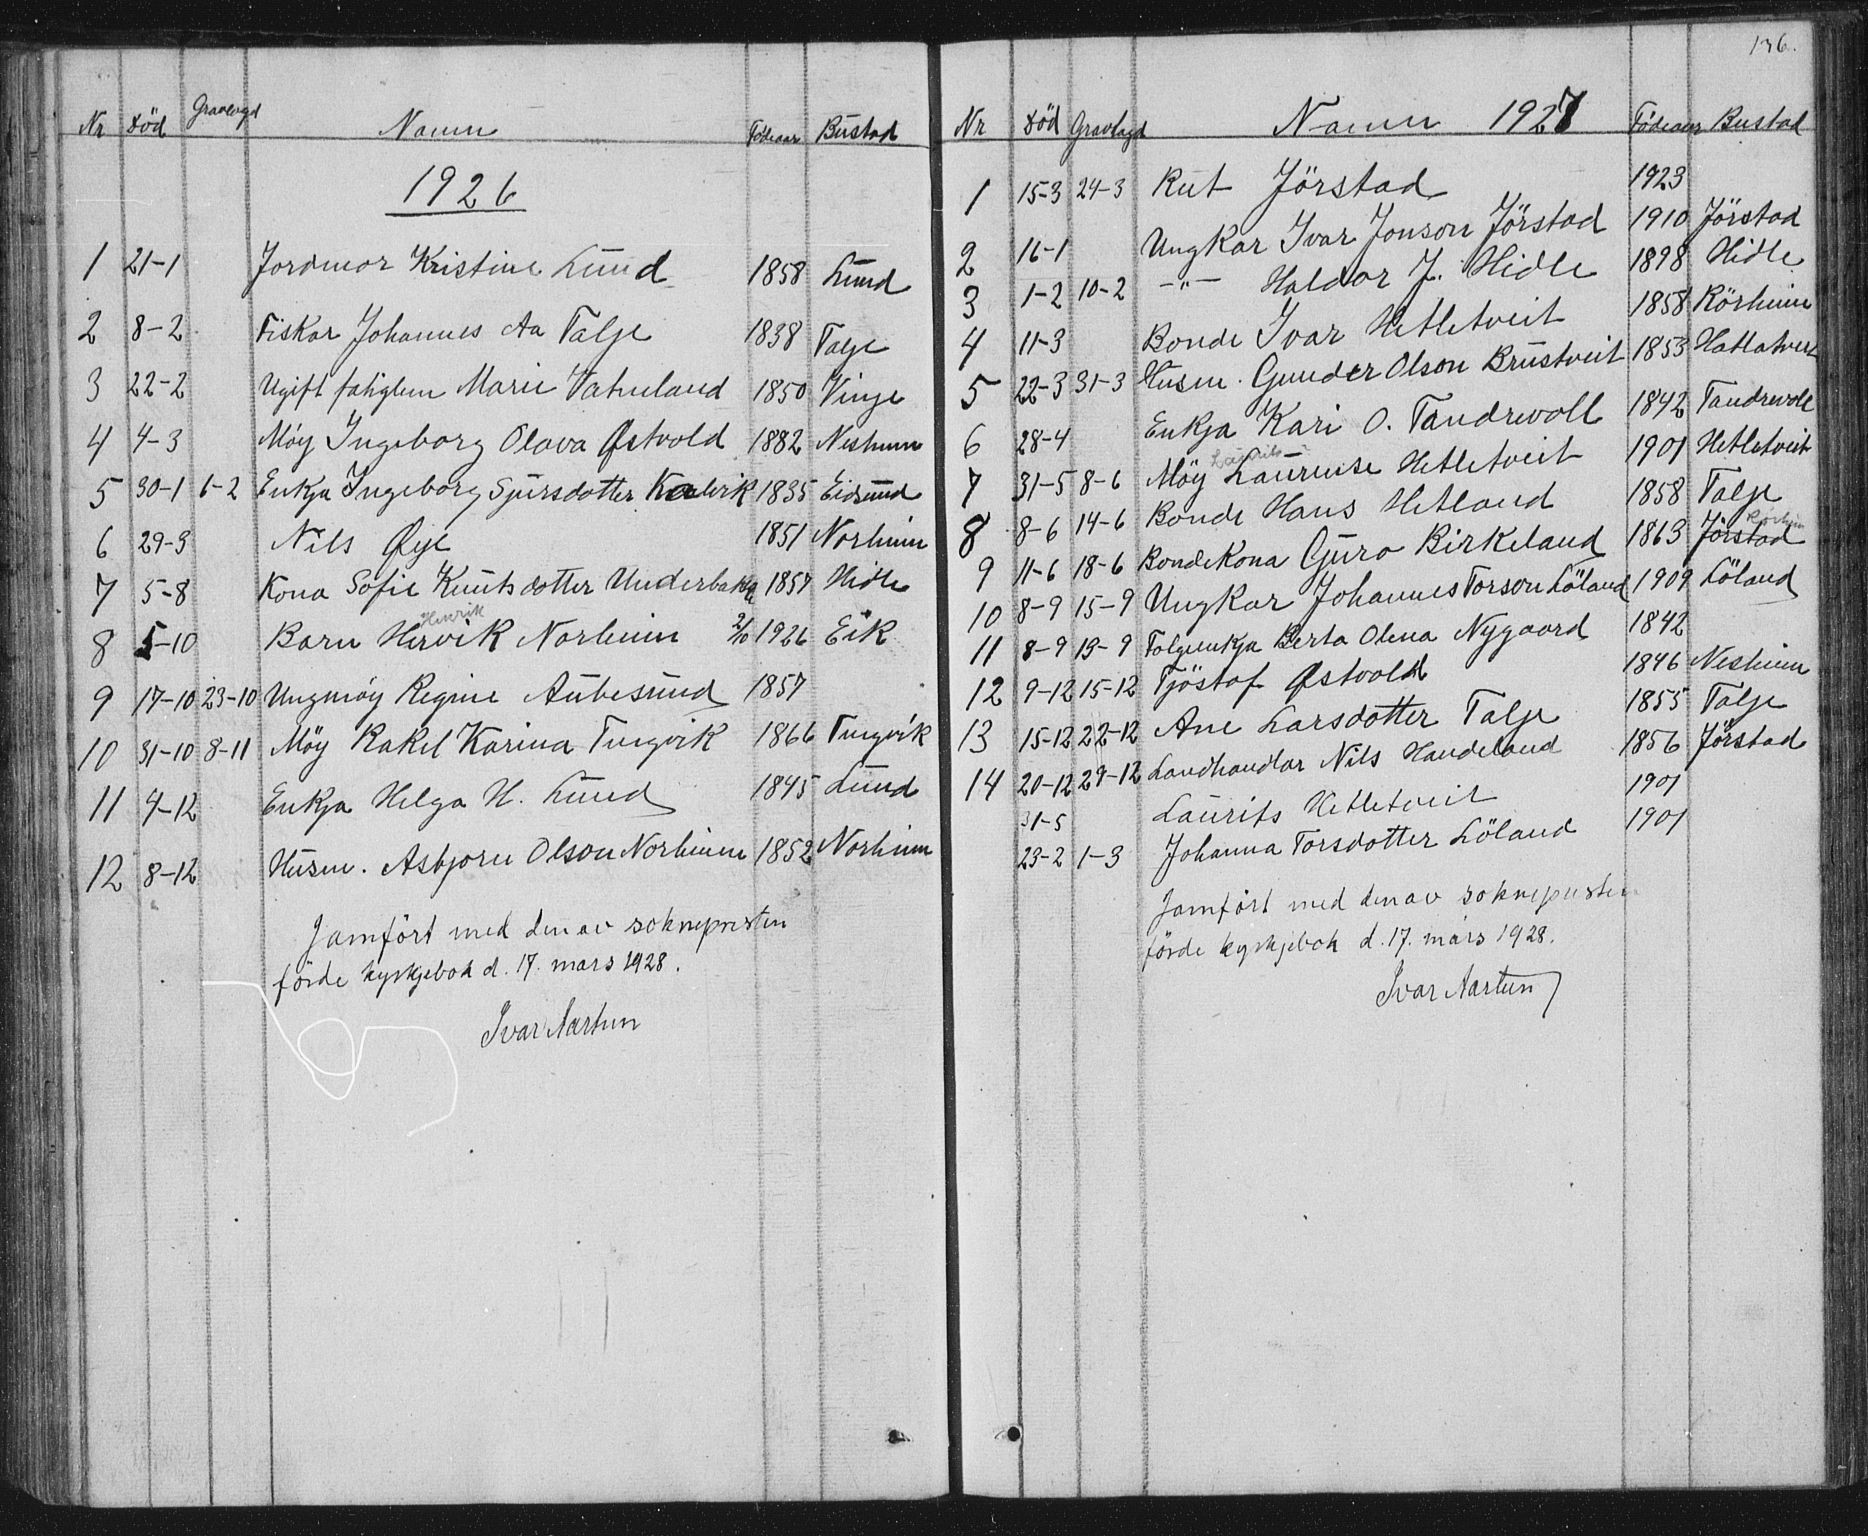 Nr Död Gravlagd Namn Födeaar Bustad
1926
1 21-1 Jordmor Kristine Lund 1858 Lund
2 8-2 Fiskar Johannes Aa Talje 1838 Talje
3 22-2 Ugift Marie Vatneland 1850 Vinje
4 4-3 Möy Ingeborg Olava Østvold 1882 Nesheim
5 30-1 6-2 Enkja Ingeborg Sjursdotter Kalvik 1835 Eidsund
6 29-3 Nils Øye 1851 Norheim
7 5-8 Kona Sofie Knutsdotter Underbakka 1857 Hidle
Henrik
8 5-10 Barn Hervik Norheim 2/10 1926 Eik
9 17-10 23-10 Ungmöy Regine Aubesund 1857
10 31-10 8-11 Möy Rakel Karina Tungvik 1866 Tungvik
11 4-12 Enkja Helga H. Lund 1845 Lund
12 8-12 Husm. Asbjorn Olson Norheim 1852 Norheim
Jamfört med den av soknepresten
förde kyrkjebok d. 17. mars 1928.
Ivar Aartun
136.
Nr Död Gravlagd Namn 1927 Födeaar Bustad
1 15-3 24-3 Rut Jörstad 1923
2 16-1 Ungkar Ivar Jonson Jörstad 1910 Jörstad
3 1-2 10-2 -"- Haldor J. Hidle 1898 Hidle
4 11-3 Bonde Ivar Hetletveit 1858 Rörheim
5 22-3 31-3 Husm. Gunder Olson Brustveit 1853 Hatlatveit
6 28-4 Enkja Kari O. Tandrevoll 1842 Tandrevoll
Laurits
7 31-5 8-6 Möy Laurense Hetletveit 1901 Hetletveit
8 8-6 14-6 Bonde Hans Hetland 1858 Talje
Rörheim
9 11-6 18-6 Bondekona Guro Birkeland 1863 Jörstad
10 8-9 15-9 Ungkar Johannes Torson Löland 1909 Löland
11 8-9 13-9 Folgeenkja Berta Olena Nygaard 1842
12 9-12 15-12 Tjöstof Østvold 1846 Nesheim
13 15-12 22-12 Ane Larsdotter Talje 1855 Talje
14 20-12 29-12 Landhandlar Nils Handeland 1856 Jörstad
31-5 Laurits Hetletveit 1901
23-2 1-3 Johanna Torsdotter Löland 1901
Jamfört med den av soknepresten
förde kyrkjebok d. 17. mars 1928.
Ivar Aartun